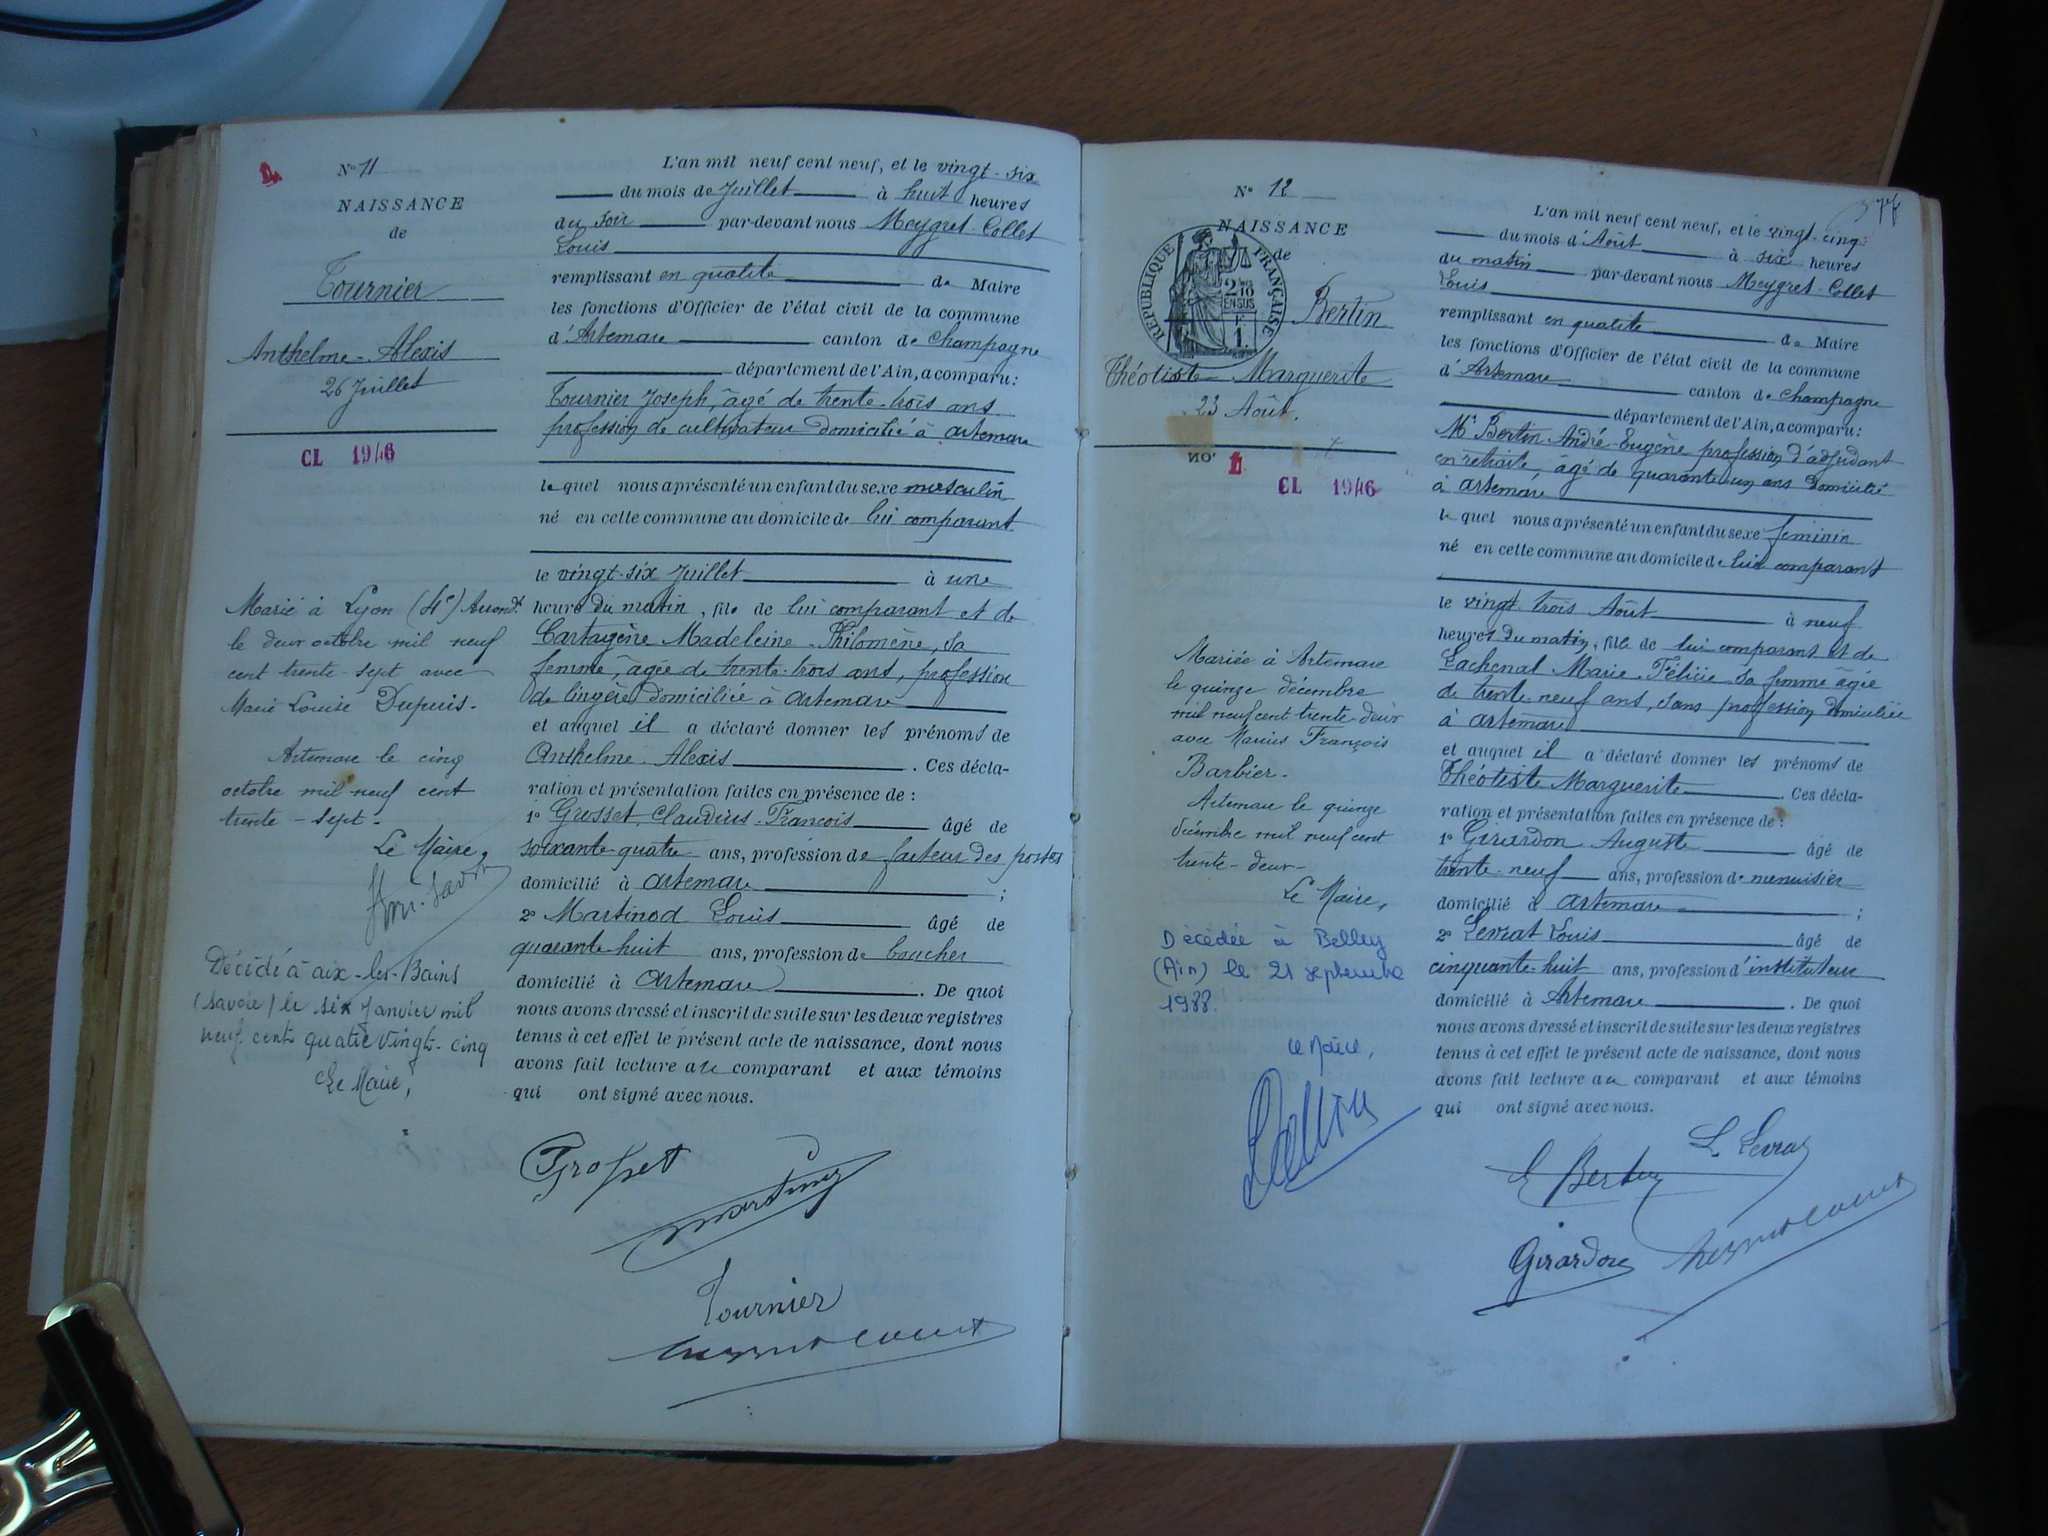 N° 11
NAISSANCE
de
Tournier
Anthelme-Alexis
26 Juillet
CL 1946
Marié à Lyon (4e) Arrondt
le deux octobre mil neuf
cent trente-sept avec
Marie Louise Dupuis.
Artemare le cinq
octobre mil neuf cent
trente-sept.
Le Maire,
Décédé à aix-les-Bains
(Savoie) le six Janvier mil
neuf cent quatre vingt-cinq
Le Maire,
L'an mil neuf cent neuf, et le vingt-six
du mois de Juillet à huit heures
du soir par-devant nous Meygret-Collet
Louis
remplissant en qualité de Maire
les fonctions d'Officier de l'état civil de la commune
d'Artemare canton de Champagne
département de l'Ain, a comparu:
Tournier Joseph, âgé de trente-trois ans
profession de cultivateur domicilié à artemare
lequel nous a présenté un enfant du sexe masculin
né en cette commune au domicile de lui comparant
le vingt-six Juillet à une
heure du matin, fils de lui comparant et de
Cartagène Madeleine-Philomène, sa
femme, âgée de trente-trois ans, profession
de lingère domiciliée à artemare
et auquel il a déclaré donner les prénoms de
Anthelme-Alexis. Ces décla-
ration et présentation faites en présence de :
1° Grosset Claudius-François âgé de
soixante-quatre ans, profession de facteur des postes
domicilié à artemare ;
2° Martinod Louis âgé de
quarante-huit ans, profession de boucher
domicilié à artemare. De quoi
nous avons dressé et inscrit de suite sur les deux registres
tenus à cet effet le présent acte de naissance, dont nous
avons fait lecture au comparant et aux témoins
qui ont signé avec nous.
Grosset
Martinod
Tournier
N° 12
NAISSANCE
de
REPUBLIQUE FRANÇAISE
2/10
EN SUS
1 F
Bertin
Théotiste-Marguerite
23 Août.
NO.
CL 1946
Mariée à Artemare
le quinze décembre
mil neuf cent trente-deux
avec Marius François
Barbier.
Artemare le quinze
décembre mil neuf cent
trente-deux-
Le Maire,
Décédée à Belley
(Ain) le 21 septembre
1988.
Le Maire,
L'an mil neuf cent neuf, et le vingt-cinq
du mois d'Août à six heures
du matin par-devant nous Meygret-Collet
Louis
remplissant en qualité de Maire
les fonctions d'Officier de l'état civil de la commune
d'Artemare canton de Champagne
département de l'Ain, a comparu:
Mr Bertin André-Eugène profession d'adjudant
en retraite, âgé de quarante-un ans domicilié
à artemare
lequel nous a présenté un enfant du sexe féminin
né en cette commune au domicile de lui comparant
le vingt-trois Août à neuf
heures du matin, fille de lui comparant et de
Lachenal Marie-Félicie sa femme âgée
de trente-neuf ans, sans profession domiciliée
à artemare
et auquel il a déclaré donner les prénoms de
Théotiste Marguerite. Ces décla-
ration et présentation faites en présence de :
1° Girardon Auguste âgé de
trente-neuf ans, profession de menuisier
domicilié à artemare ;
2° Levrat Louis âgé de
cinquante-huit ans, profession d'instituteur
domicilié à Artemare. De quoi
nous avons dressé et inscrit de suite sur les deux registres
tenus à cet effet le présent acte de naissance, dont nous
avons fait lecture au comparant et aux témoins
qui ont signé avec nous.
L. Levrat
E Bertin
Girardon